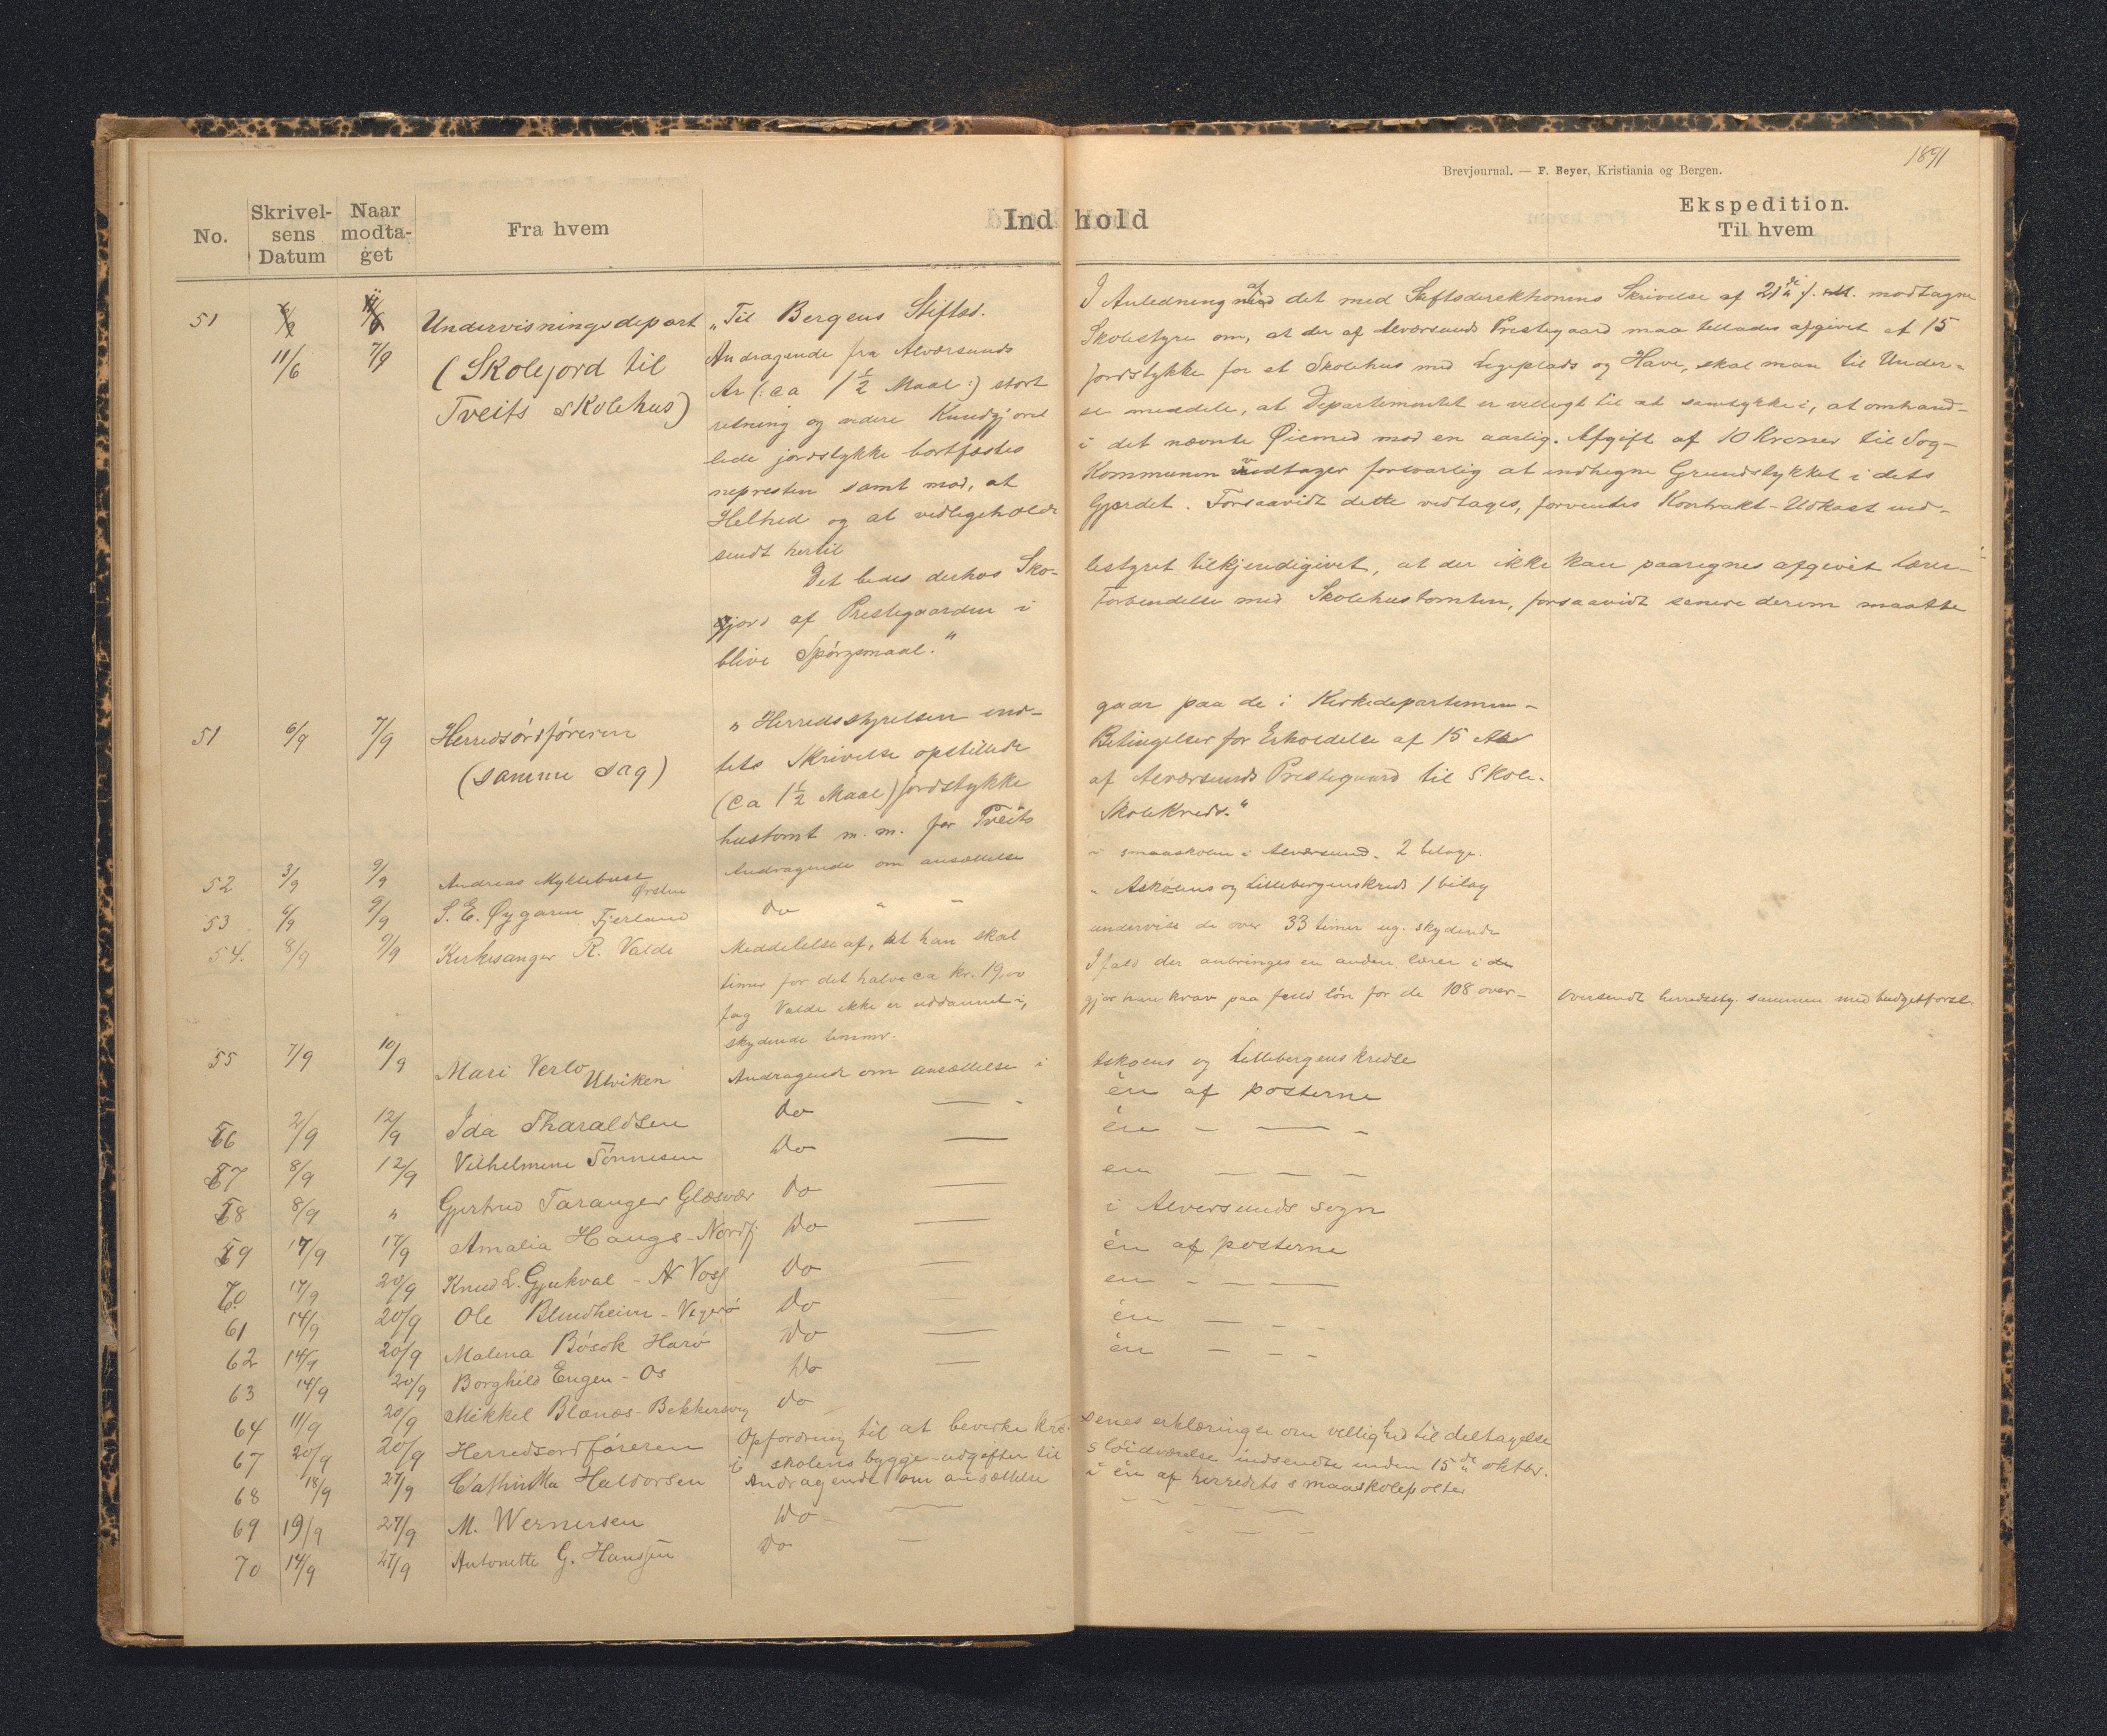 1891
Brevjournal. — F. Beyer, Kristiania og Bergen.
No. Skrivelsens Datum Naar modtaget Fra hvem Indhold Ekspedition. Til hvem
51 11/6 7/9 Undervisningsdepart „Til Bergens Stiftsd. I Anledning af det med Stiftsdirektionens Skrivelse af 21de f. M. modtagne
(Skolejord til Andragende fra Alværsunds Skolestyre om, at der af Alværsunds Prestegaard maa tillades afgivet et 15
Tveits skolehus) Ar (: ca 1½ Maal :) stort jordstykke for et Skolehus med Legeplads og Have, skal man til Under-
retning og videre Kundgjørelse meddele, at Departementet er villigt til at samtykke i, at omhand-
lede jordstykke bortfæstes i det nævnte Øiemed mod en aarlig Afgift af 10 Kroner til Sog-
nepresten samt mod, at Kommunen vedtager forsvarlig at indhegne Grundstykket i dets
Helhed og at vedligeholde Gjærdet. Forsaavidt dette vedtages, forventes Kontrakt-Udkast ind-
sendt hertil
Det bedes derhos Sko- lestyret tilkjendigivet, at der ikke kan paaregnes afgivet lærer-
jord af Prestegaarden i Forbindelse med Skolehustomten, forsaavidt senere derom maatte
blive Spørgsmaal."
51 6/9 7/9 Herredsordføreren „Herredsstyrelsen ind- gaar paa de i Kirkedepartemen-
(samme sag) tets Skrivelse opstillede Betingelser for Erholdelse af 15 Ar
(ca 1½ Maal) jordstykke af Alværsunds Prestegaard til Skole-
hustomt m. m. for Tveits Skolekreds."
52 3/9 9/9 Andreas Myklebust Ørsten Andragende om ansættelse i smaaskolen i Alværsund. 2 bilage.
53 6/9 9/9 S. E. Øygaren Fjerland Do " " " Askøens og Lillebergenskreds 1 bilag
54. 8/9 9/9 Kirkesanger R. Valde Meddelelse af, at han skal undervise de over 33 timer ug. skydende
timer for det halve ca kr. 19,00 I fald der anbringes en anden lærer i de
fag Valde ikke er uddannet i, gjør han krav paa fuld løn for de 108 over- Oversendt herredsty. sammen med budgetforsl.
skydende timer.
55 7/9 10/9 Mari Verlo Utviken Andragende om ansættelse i Askøens og Lillebergenskredse
56 2/9 12/9 Ida Tharaldsen Do — èn af posterne
57 8/9 12/9 Vilhelmine Tønnesen Do — èn — — —
58 8/9 " Gjertrud Taranger Glæsvær Do — en — — —
59 17/9 17/9 Amalia Haugs - Nordfj Do — i Alversunds sogn
60 17/9 20/9 Knud L. Gjukval - N Voss Do — èn af posterne
61 14/9 20/9 Ole Blindheim - Vigerø Do — en — — —
62 14/9 20/9 Malena Bøsok Harø Do — èn — — —
63 14/9 20/9 Borghild Engen - Os Do — èn — — —
64 11/9 20/9 Mikkel Blænæs - Bekkervig Do
67 20/9 20/9 Herredsordføreren Opfordring til at bevirke kred- senes erklæringer om villighed til deltagelse
i skolens bygge-udgifter til sløidværelse indsendte inden 15de oktbr.
68 18/9 27/9 Cathinka Haldorsen Andragende om ansættelse i èn af herredets smaaskoleposter
69 19/9 27/9 M. Wernersen Do — — — — —
70 14/9 27/9 Antonette G. Hansen Do — — — —